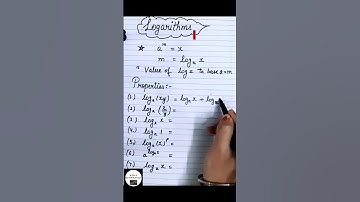 Logarithms
★ aᵐ = x
m = logₐ x
" Value of log x to base a = m
Properties:-
(1) logₐ (xy) = logₐ x + log
(2) logₐ (x/y) =
(3) logₐ x =
(4) logₐ 1 =
(5) logₐ (x)ʳ =
(6) =
(7) logₐ x =